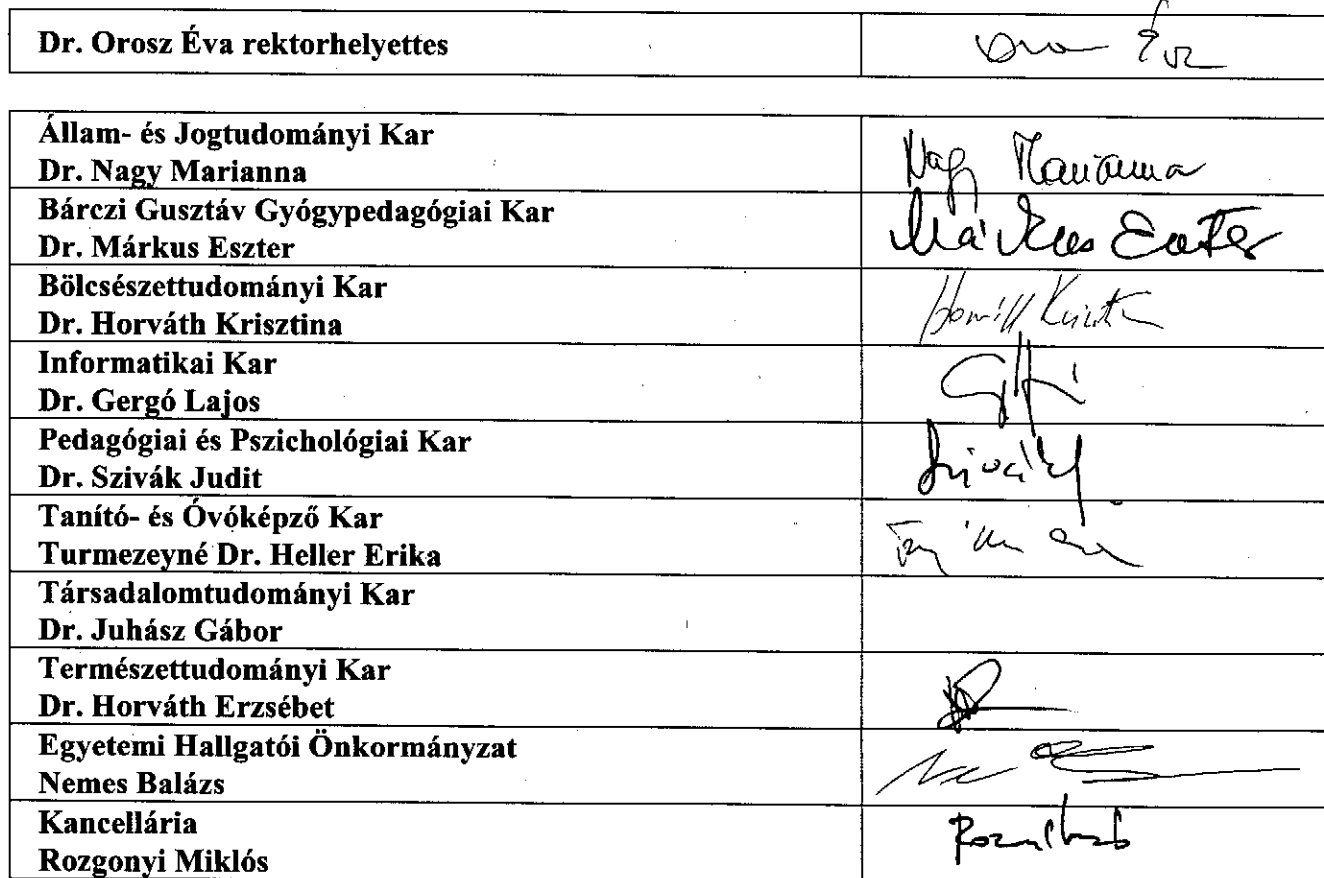 Dr. Orosz Éva rektorhelyettes
Állam- és Jogtudományi Kar
Dr. Nagy Marianna
Nagy Marianna
Bárczi Gusztáv Gyógypedagógiai Kar
Dr. Márkus Eszter
Márkus Eszter
Bölcsészettudományi Kar
Dr. Horváth Krisztina
Informatikai Kar
Dr. Gergó Lajos
Pedagógiai és Pszichológiai Kar
Dr. Szivák Judit
Tanító- és Óvóképző Kar
Turmezeyné Dr. Heller Erika
Társadalomtudományi Kar
Dr. Juhász Gábor
Természettudományi Kar
Dr. Horváth Erzsébet
Egyetemi Hallgatói Önkormányzat
Nemes Balázs
Kancellária
Rozgonyi Miklós